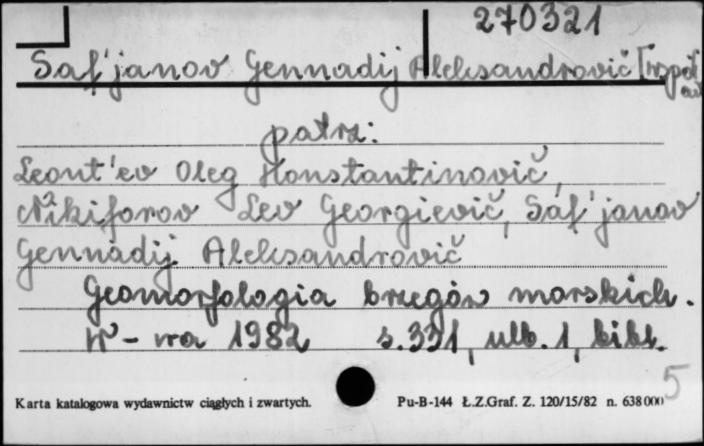 270321
Saf'janov Gennadij Aleksandrovič [współ
aut
patrz:
Leont'ev Oleg Konstantinovič,
Nikiforov Lev Georgievič, Saf'janov
Gennadij Aleksandrovič
Geomorfologia brzegów morskich.
W-wa 1982 s.331, nlb.1, bibl.
5
Karta katalogowa wydawnictw ciągłych i zwartych. Pu-B-144 Ł.Z.Graf. Z. 120/15/82 n. 638000